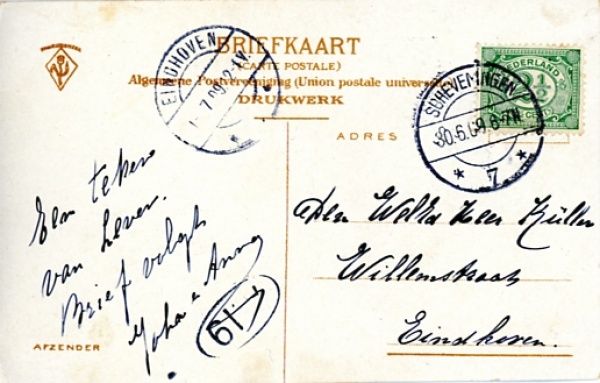 BRIEFKAART
(CARTE POSTALE)
Algemeene Postvereeniging (Union postale universelle)
DRUKWERK
EINDHOVEN
1.7.09.2-4V.
NEDERLAND
2½
CENT
SCHEVENINGEN
30.6.09.6-7N
* 7 *
ADRES
Een teken
van Leven.
Brief volgt
Joha & Anna
Den Weled. Heer Küller
Willemstraat
Eindhoven.
AFZENDER